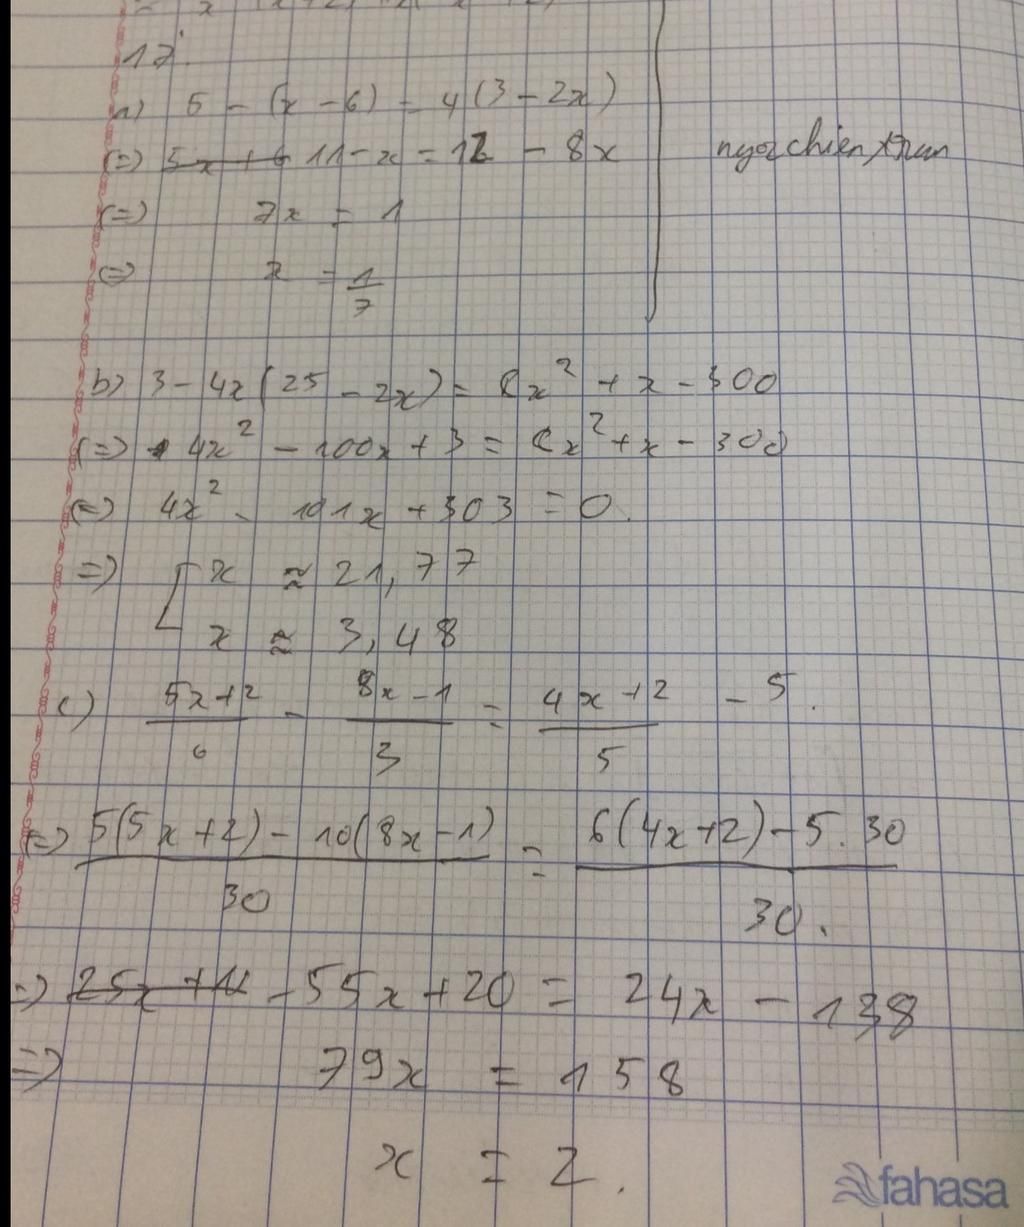 17.
a) 5 - (x - 6) = 4(3 - 2x)
(=) 5x + 6 11 - x = 12 - 8x
(=) 7x = 1
(=) x = 1/7
ngocchien,tran
b) 3 - 4x(25 - 2x) = 8x² + x - 300
(=) 4x² - 100x + 3 = 8x² + x - 300
(=) 4x² - 101x + 303 = 0.
=) [ x ≈ 21,77
x ≈ 3,48
c) (5x+2)/6 - (8x-1)/3 = (4x+2)/5 - 5.
(=) (5(5x+2) - 10(8x-1))/30 = (6(4x+2) - 5.30)/30.
=) 25x + 11 -55x + 20 = 24x - 138
=) 79x = 158
x = 2.
fahasa